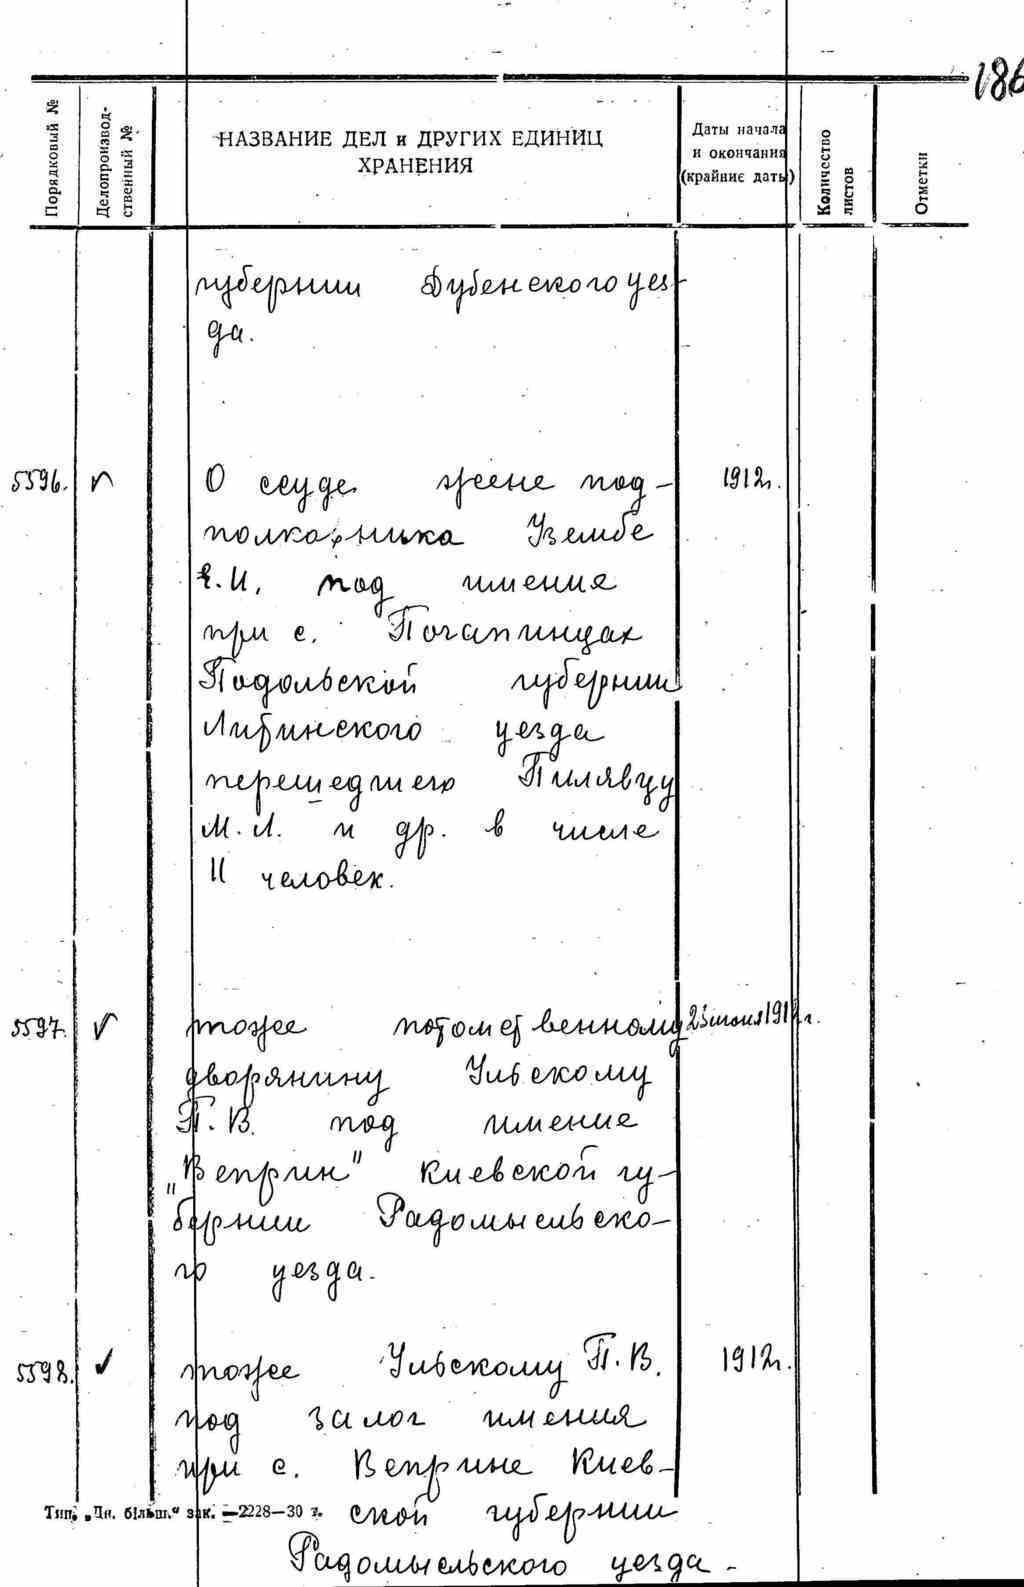 186
Порядковый №
Делопроизвод-
ственный №
НАЗВАНИЕ ДЕЛ и ДРУГИХ ЕДИНИЦ
ХРАНЕНИЯ
Даты начала
и окончания
(крайние даты)
Количество
листов
Отметки
губернии Дубенского уез-
да.
5596. О ссуде жене под- 1912г.
полковника Уземб​е
Е.И. под имения
при с. Почапинцах
Подольской губернии
Литинского уезда
перешедшего Пилявцу
М.Л. и др. в числе
11 человек.
5597. тоже потомственному 23 июня 1912г.
дворянину Ульскому
П.В. под имение
"Веприн" Киевской гу-
бернии Радомысльско-
го уезда.
5598. тоже Ульскому П.В. 1912г.
под залог имения
при с. Веприне Киев-
ской губернии
Радомысльского уезда.
Тип. „Дн. більш." зак. —2228—30 т.